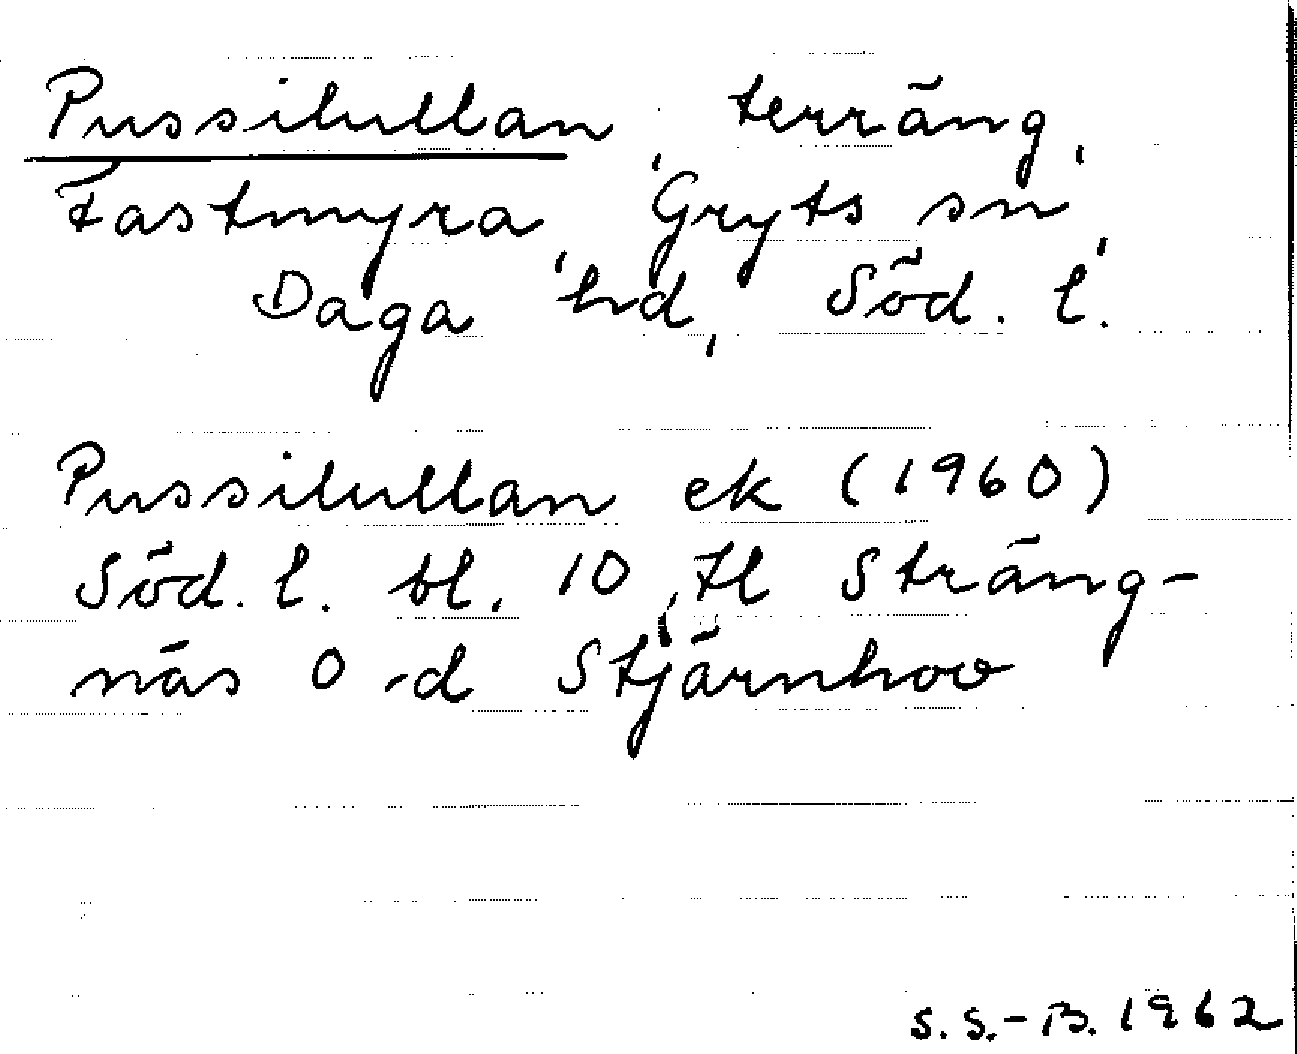 Pussilullan, terräng,
Fastmyra, Gryts sn,
Daga hd, Söd. l.
Pussilullan ek (1960)
Söd. l. bl. 10, tl Sträng-
näs O -d Stjärnhov
S.S.-B. 1962